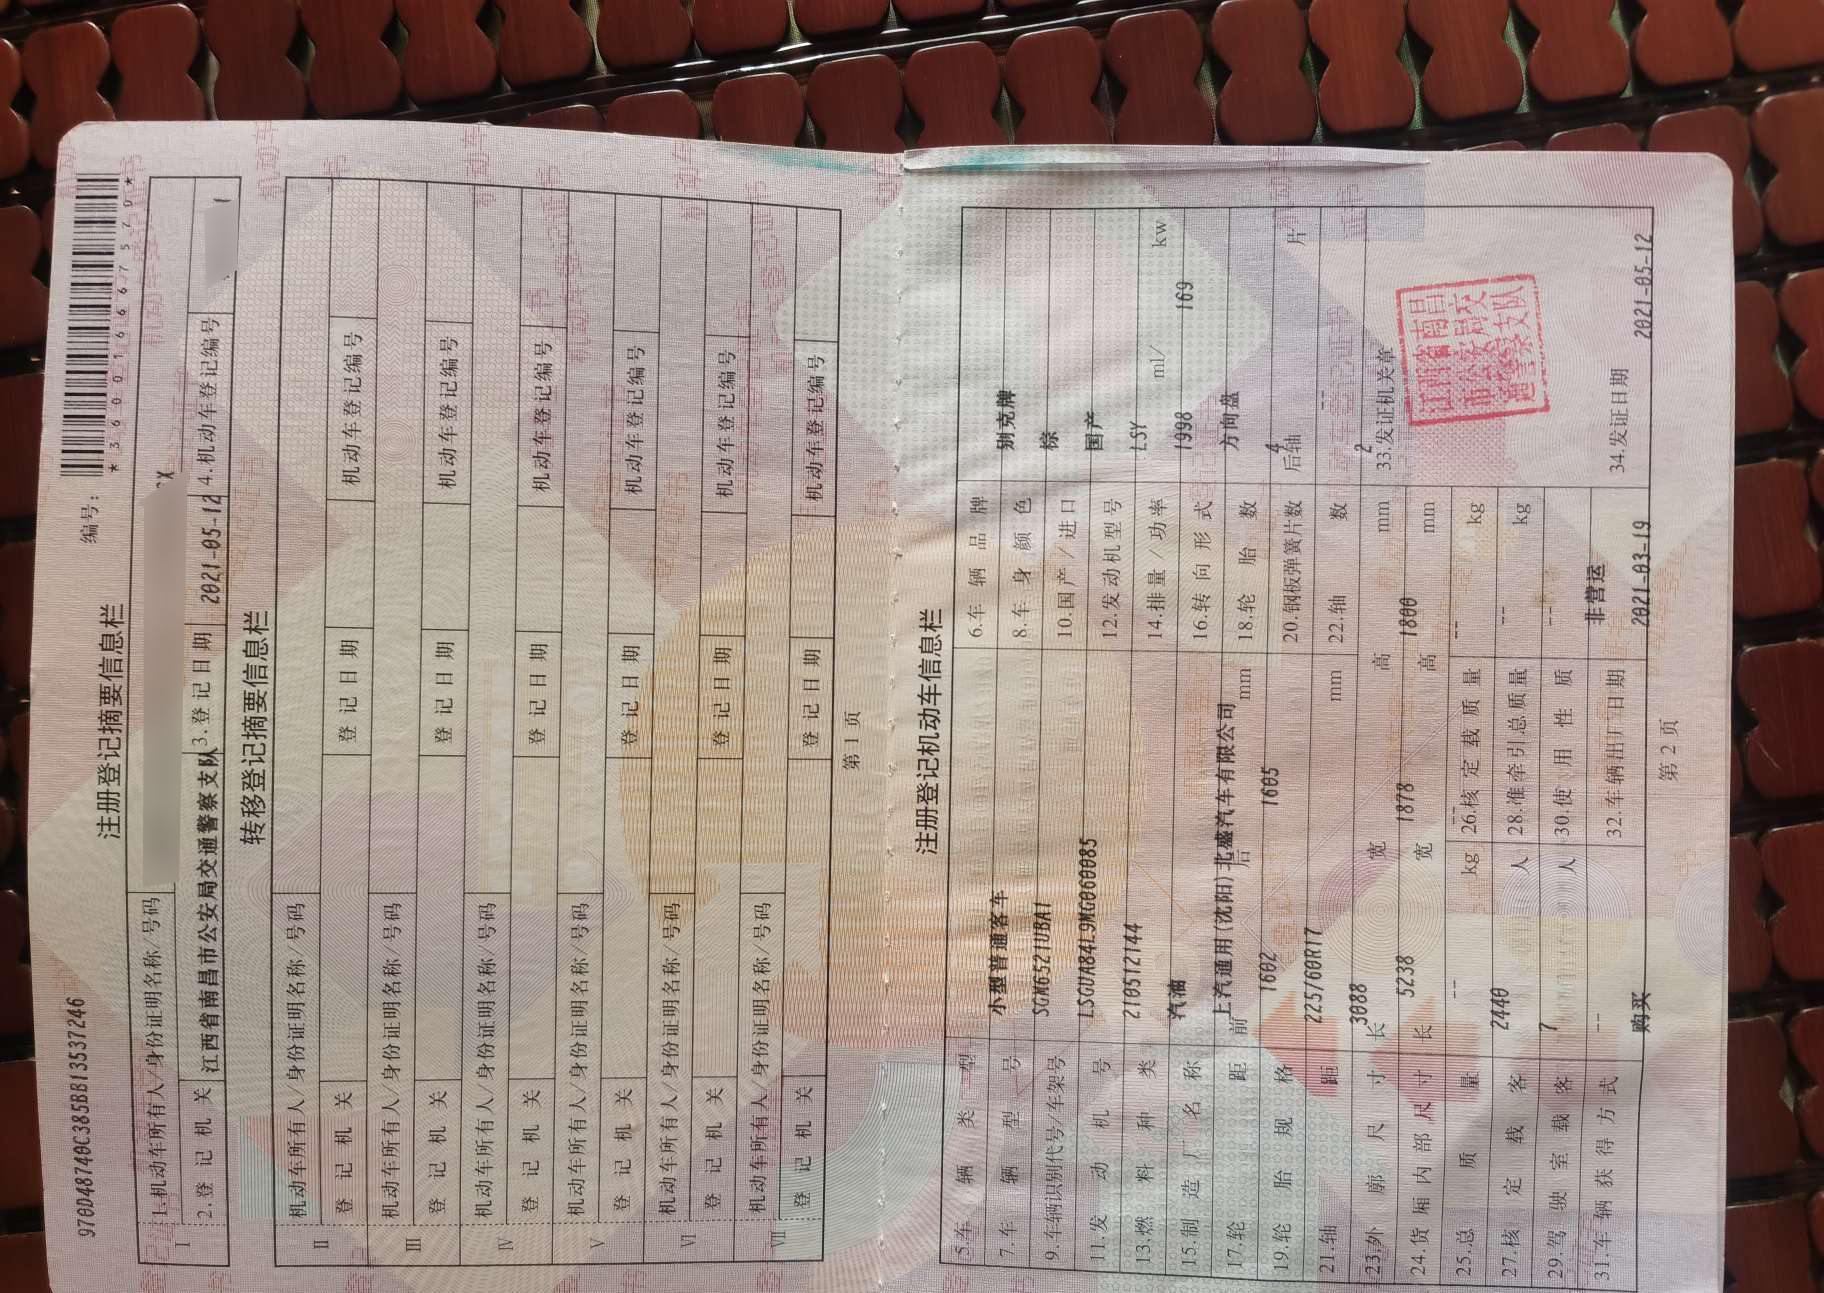 970D48740C385BB13537246
编号：
*360016667570*
注册登记摘要信息栏
I 1.机动车所有人/身份证明名称/号码 X
2.登记机关 江西省南昌市公安局交通警察支队 3.登记日期 2021-05-12 4.机动车登记编号
转移登记摘要信息栏
II 机动车所有人/身份证明名称/号码
登记机关 登记日期 机动车登记编号
III 机动车所有人/身份证明名称/号码
登记机关 登记日期 机动车登记编号
IV 机动车所有人/身份证明名称/号码
登记机关 登记日期 机动车登记编号
V 机动车所有人/身份证明名称/号码
登记机关 登记日期 机动车登记编号
VI 机动车所有人/身份证明名称/号码
登记机关 登记日期 机动车登记编号
VII 机动车所有人/身份证明名称/号码
登记机关 登记日期 机动车登记编号
第1页
注册登记机动车信息栏
5.车辆类型 小型普通客车 6.车辆品牌 别克牌
7.车辆型号 SGM6521UBA1 8.车身颜色 棕
9.车辆识别代号/车架号 LSGUA84L9MG060085 10.国产/进口 国产
11.发动机号 210512144 12.发动机型号 LSY
13.燃料种类 汽油 14.排量/功率 1998 ml/ 169 kw
15.制造厂名称 上汽通用(沈阳)北盛汽车有限公司 16.转向形式 方向盘
17.轮距 前 1602 后 1605 mm 18.轮胎数 4
19.轮胎规格 225/60R17 20.钢板弹簧片数 后轴 -- 片
21.轴距 3088 mm 22.轴数 2
23.外廓尺寸 长 5238 宽 1878 高 1800 mm 33.发证机关章
24.货厢内部尺寸 长 -- 宽 -- 高 -- mm
25.总质量 2440 kg 26.核定载质量 -- kg
27.核定载客 7 人 28.准牵引总质量 -- kg
29.驾驶室载客 -- 人 30.使用性质 非营运
31.车辆获得方式 购买 32.车辆出厂日期 2021-03-19 34.发证日期 2021-05-12
江西省南昌
市公安局交
通警察支队
第2页